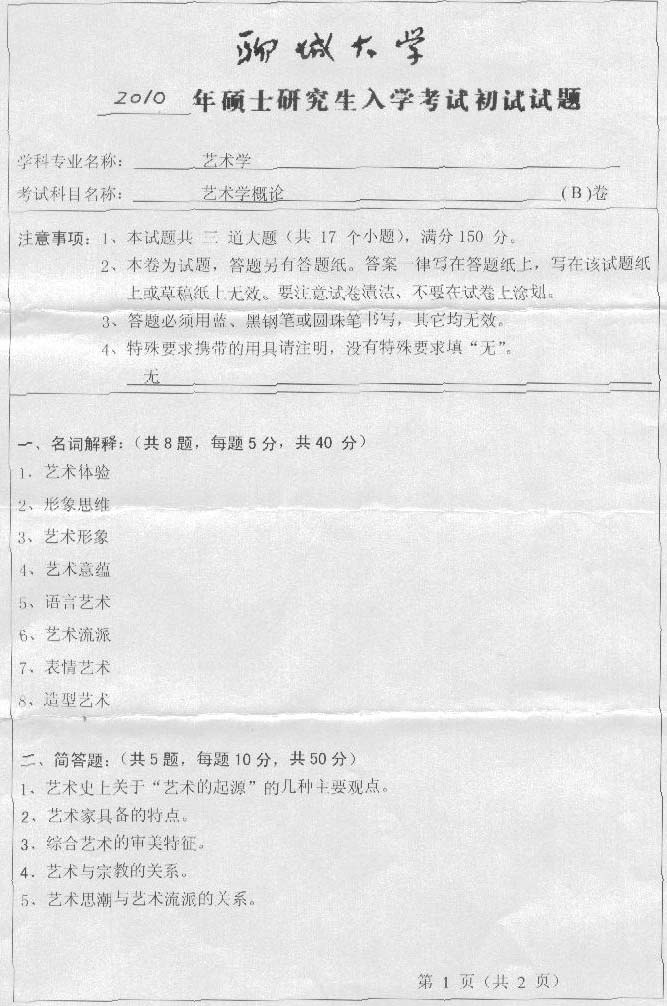 聊城大学
2010 年硕士研究生入学考试初试试题
学科专业名称： 艺术学
考试科目名称： 艺术学概论 (B)卷
注意事项：1、本试题共 三 道大题（共 17 个小题），满分150 分。
2、本卷为试题，答题另有答题纸。答案一律写在答题纸上，写在该试题纸
上或草稿纸上无效。要注意试卷清洁、不要在试卷上涂划。
3、答题必须用蓝、黑钢笔或圆珠笔书写，其它均无效。
4、特殊要求携带的用具请注明，没有特殊要求填“无”。
无
一、名词解释：（共8题，每题5分，共40 分）
1、艺术体验
2、形象思维
3、艺术形象
4、艺术意蕴
5、语言艺术
6、艺术流派
7、表情艺术
8、造型艺术
二、简答题：（共5题，每题10分，共50分）
1、艺术史上关于“艺术的起源”的几种主要观点。
2、艺术家具备的特点。
3、综合艺术的审美特征。
4、艺术与宗教的关系。
5、艺术思潮与艺术流派的关系。
第 1 页（共 2 页）